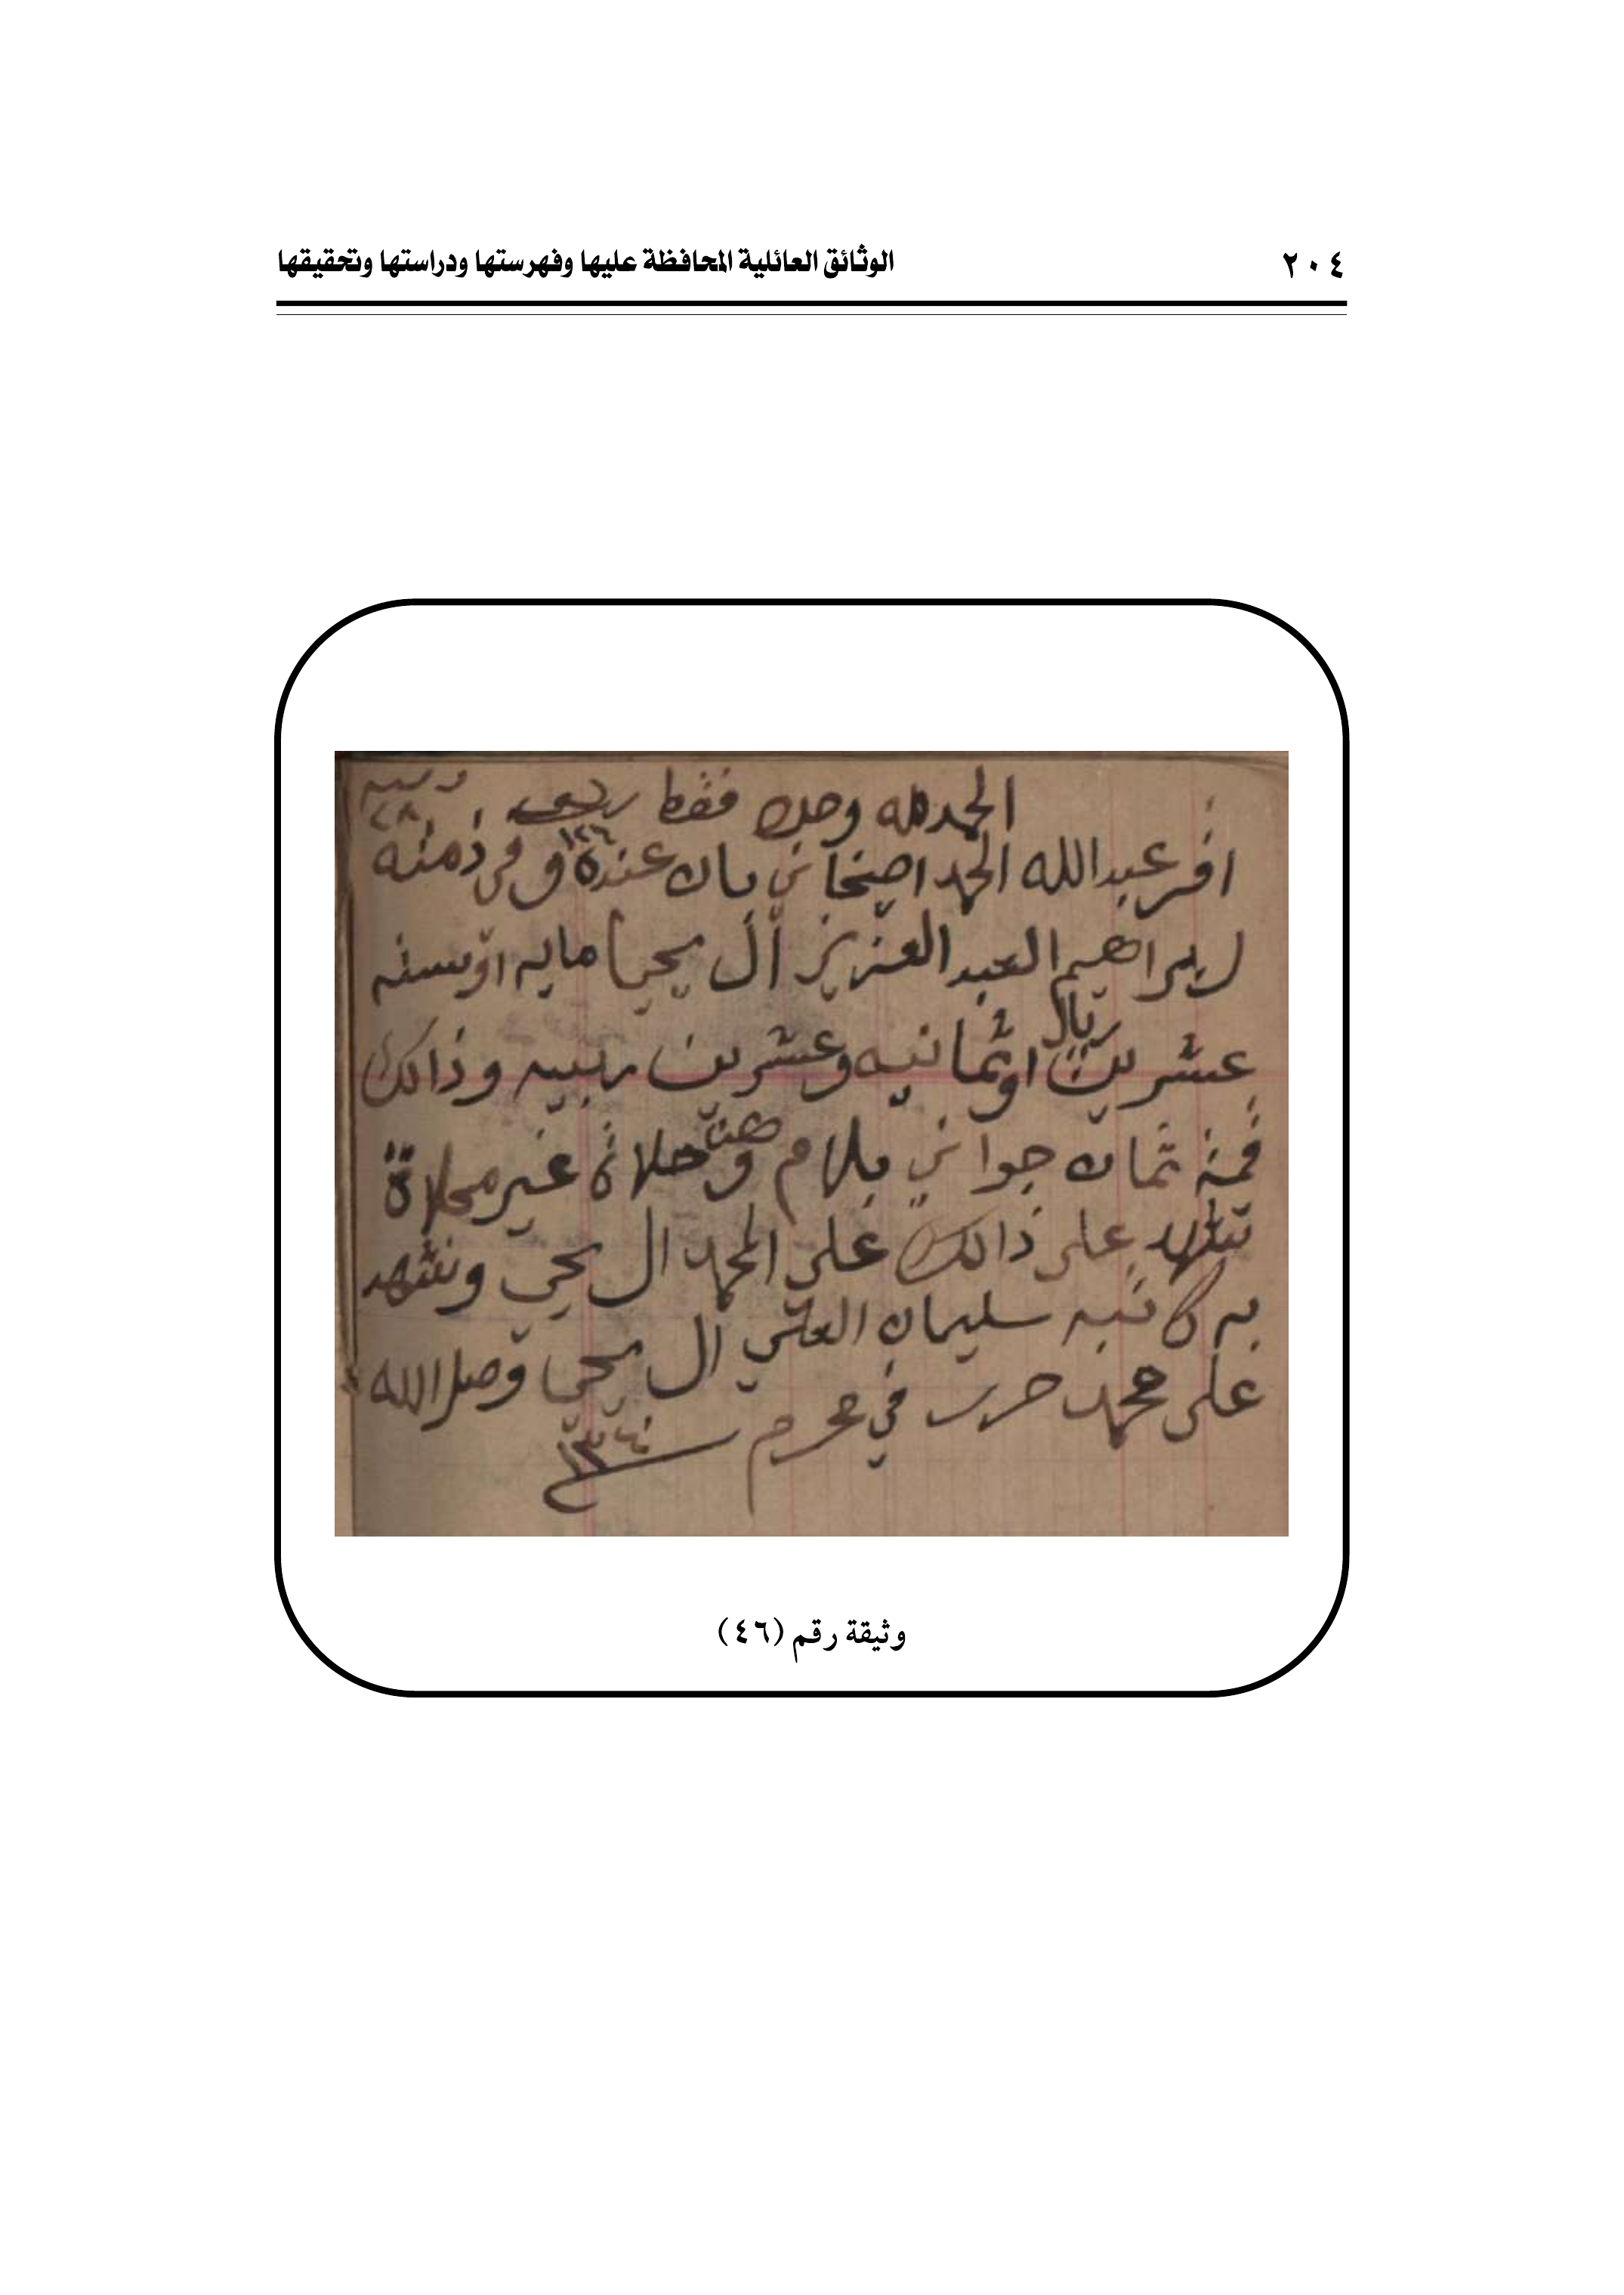 ٢٠٤ الوثائق العائلية المحافظة عليها وفهرستها ودراستها وتحقيقها
الحمد لله وحده فقط ريال ربيه
١٢٦ ٢٨
اقر عبدالله الحمد اصخاني بان عنده و في ذمته
لبراهيم العبد العزيز آل يحيا مايه او سته
عشرين ريال او ثمانيه وعشرين ربيه وذالك
قمة ثمان جواني بلام وهن حلاة غير محلاة
شهد على ذالك علي المحمد ال يحي ونشهد
به كاتبه سليمان العلي ال يحي وصلى الله
على محمد حرر في محرم سنة ١٣٤٠
وثيقة رقم (٤٦)